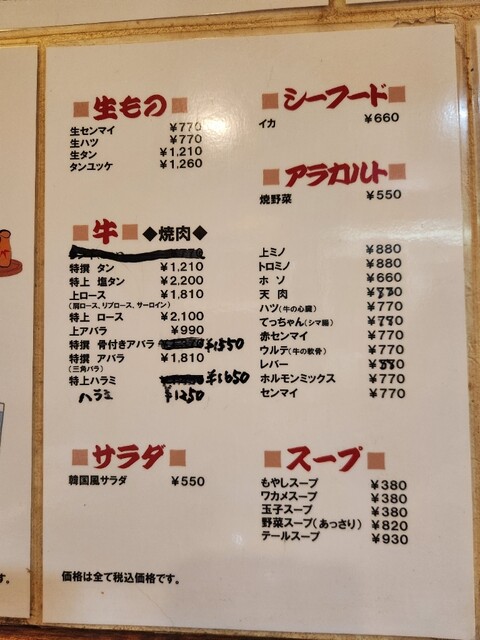 ■生もの■
生センマイ ¥770
生ハツ ¥770
生タン ¥1,210
タンユッケ ¥1,260
■シーフード■
イカ ¥660
■アラカルト■
焼野菜 ¥550
■牛■ ◆焼肉◆
特撰 タン ¥1,210
特上 塩タン ¥2,200
上ロース ¥1,810
(肩ロース、リブロース、サーロイン)
特上 ロース ¥2,100
上アバラ ¥990
特撰 骨付きアバラ ¥1550
特撰 アバラ ¥1,810
(三角バラ)
特上ハラミ ¥1650
ハラミ ¥1250
上ミノ ¥880
トロミノ ¥880
ホソ ¥660
天肉
ハツ(牛の心臓) ¥770
てっちゃん(シマ腸)
赤センマイ ¥770
ウルテ(牛の軟骨) ¥770
レバー
ホルモンミックス ¥770
センマイ ¥770
■サラダ■
韓国風サラダ ¥550
■スープ■
もやしスープ ¥380
ワカメスープ ¥380
玉子スープ ¥380
野菜スープ(あっさり) ¥820
テールスープ ¥930
価格は全て税込価格です。
す。